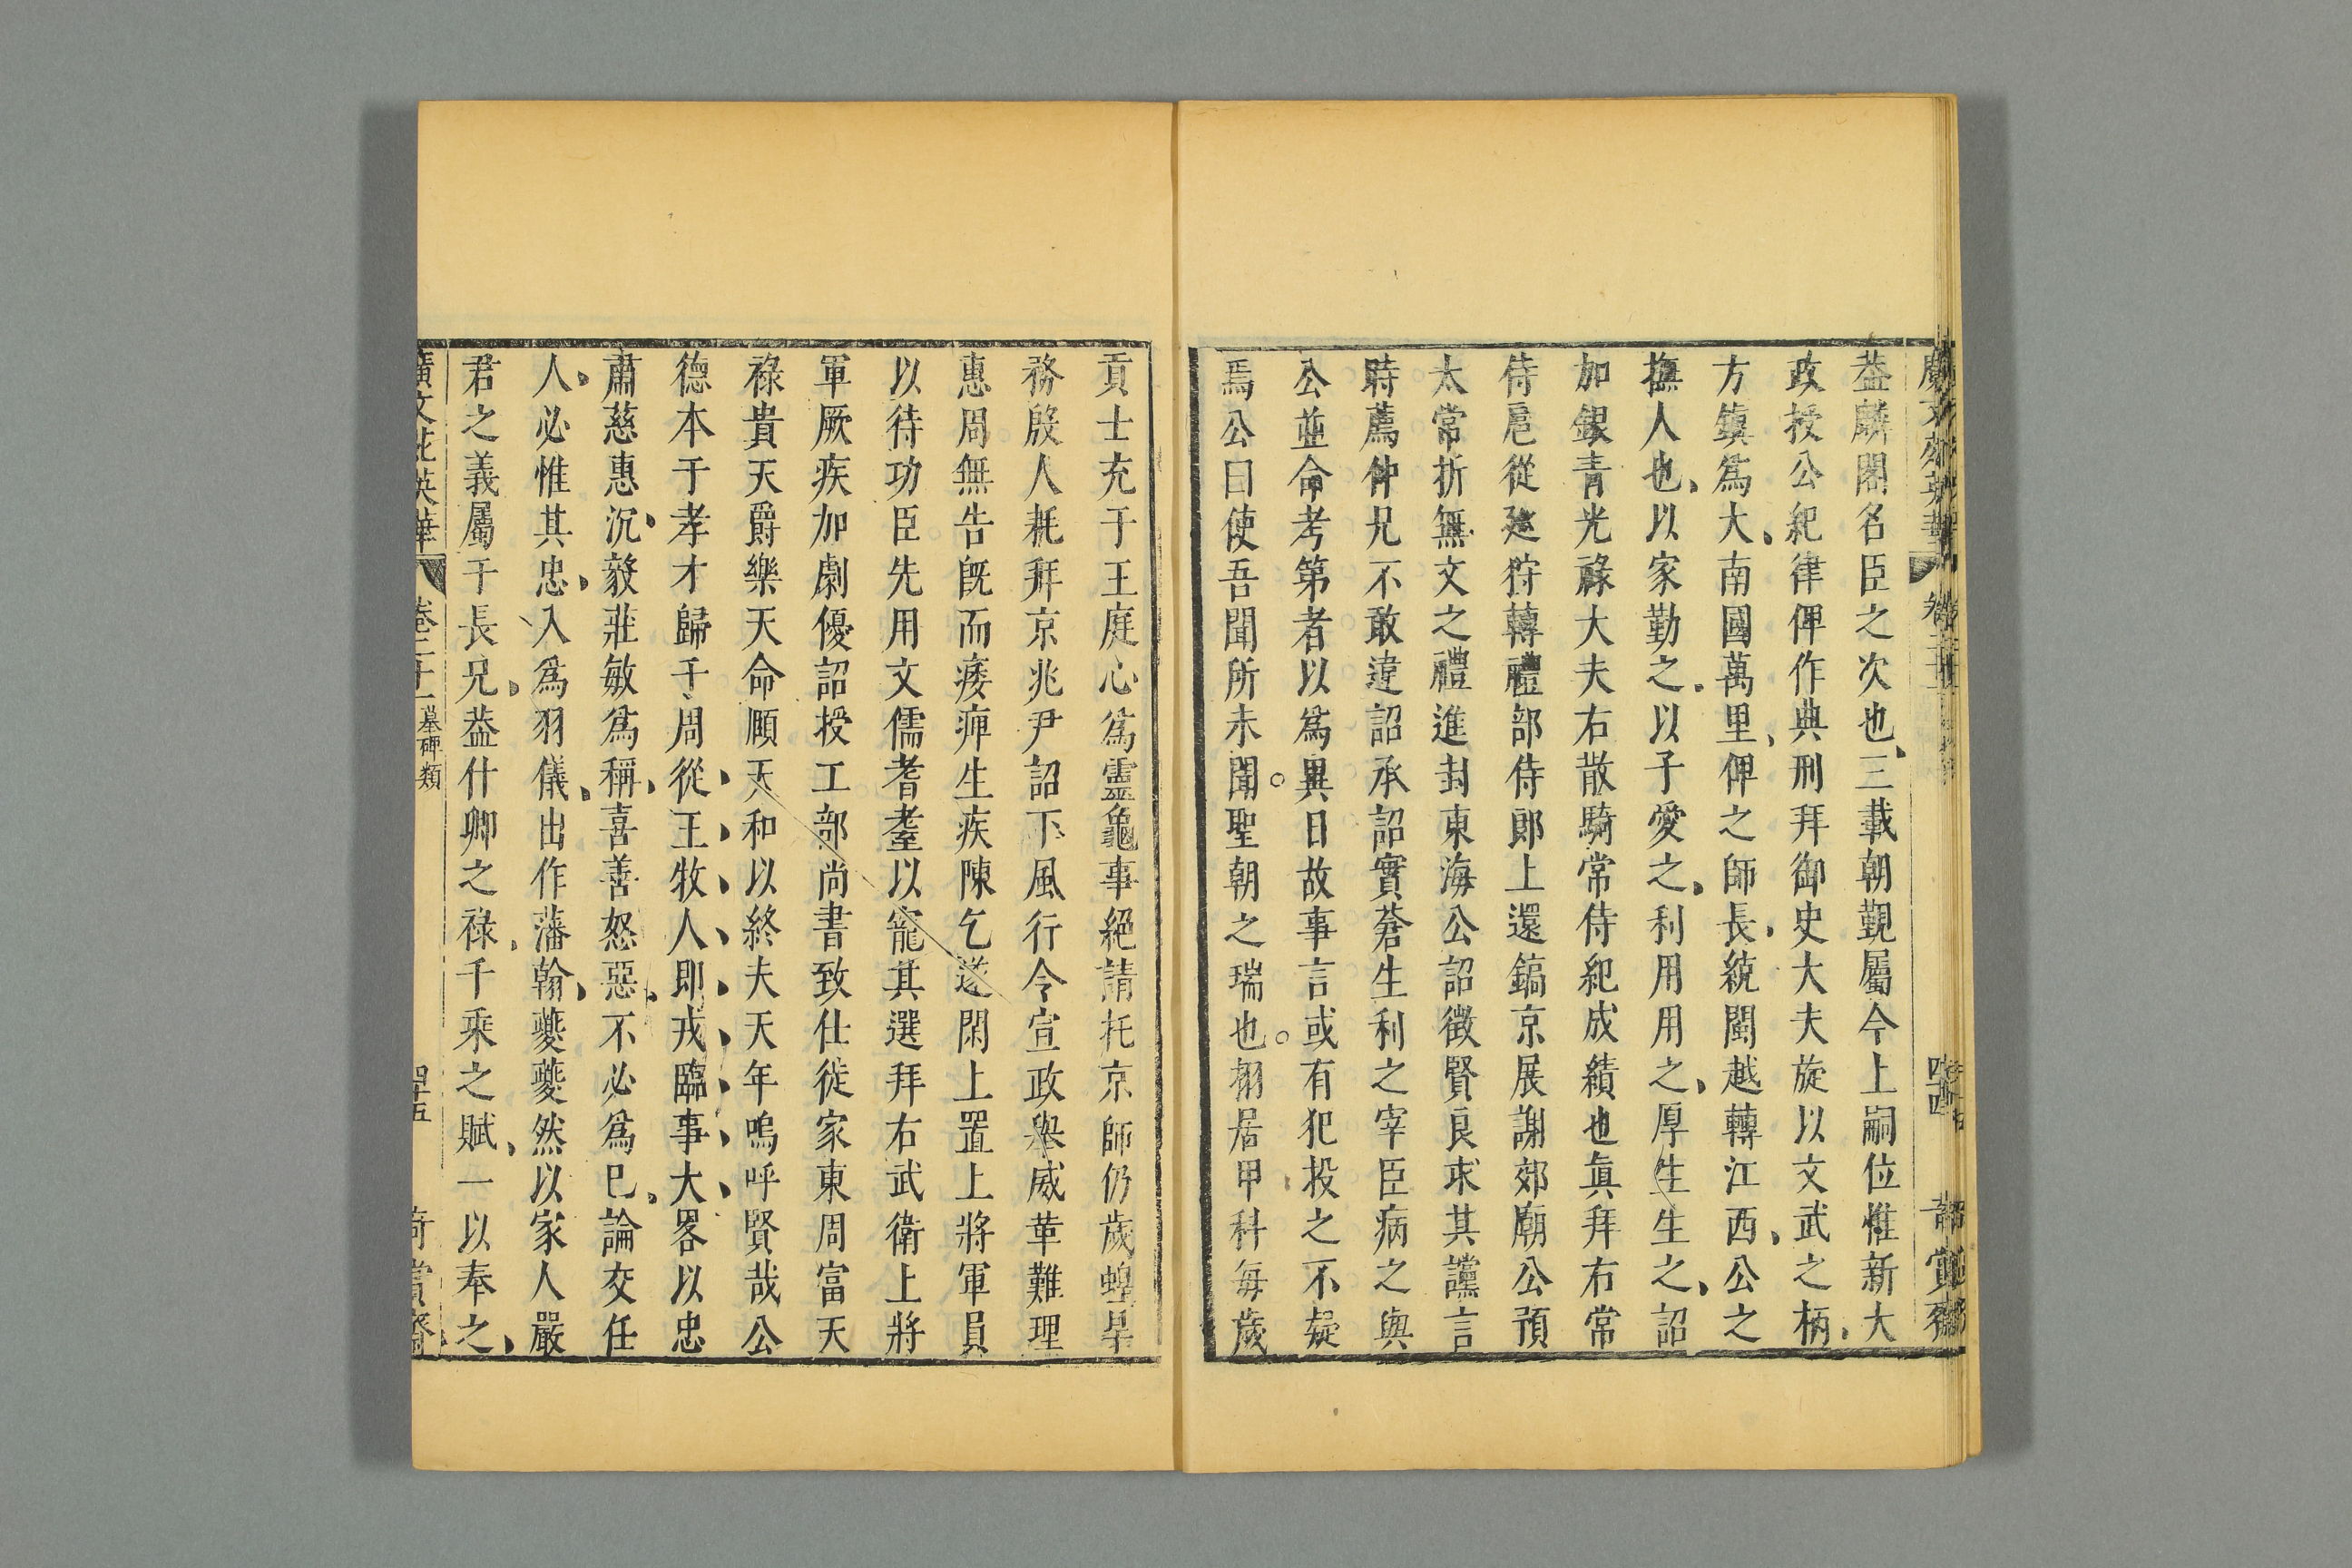 葢麟閣名臣之次也三載朝覲屬今上嗣位惟新大
政授公紀律俾作典刑拜御史大夫旋以文武之柄
方鎮爲大南國萬里俾之師長統閩越轉江西公之
撫人也以家勤之以子愛之利用用之厚生生之詔
加銀青光祿大夫右散騎常侍紀成績也眞拜右常
侍扈從廵狩轉禮部侍郎上還鎬京展謝郊廟公預
太常折無文之禮進封東海公詔徵賢良求其讜言
時薦仲兄不敢違詔承詔實蒼生利之宰臣病之與
公並命考第者以爲異日故事言或有犯投之不疑
焉公曰使吾聞所未聞聖朝之瑞也栩居甲科每歲
貢士充于王庭心爲靈龜事絕請托京師仍歲蝗旱
務殷人耗拜京兆尹詔下風行令宣政舉威革難理
惠周無告旣而痿痺生疾陳乞遂閑上置上將軍員
以待功臣先用文儒耆耋以寵其選拜右武衛上將
軍厥疾加劇優詔授工部尚書致仕徙家東周富天
祿貴天爵樂天命順天和以終夫天年嗚呼賢哉公
德本于孝才歸于周從王牧人即戎臨事大畧以忠
肅慈惠沉毅莊敏爲稱喜善怒惡不必爲巳論交任
人必惟其忠入爲羽儀出作藩翰夔夔然以家人嚴
君之義屬于長兄葢什卿之祿千乘之賦一以奉之
廣文苑英華 卷二十一 墓碑類 四十五 奇賞齋